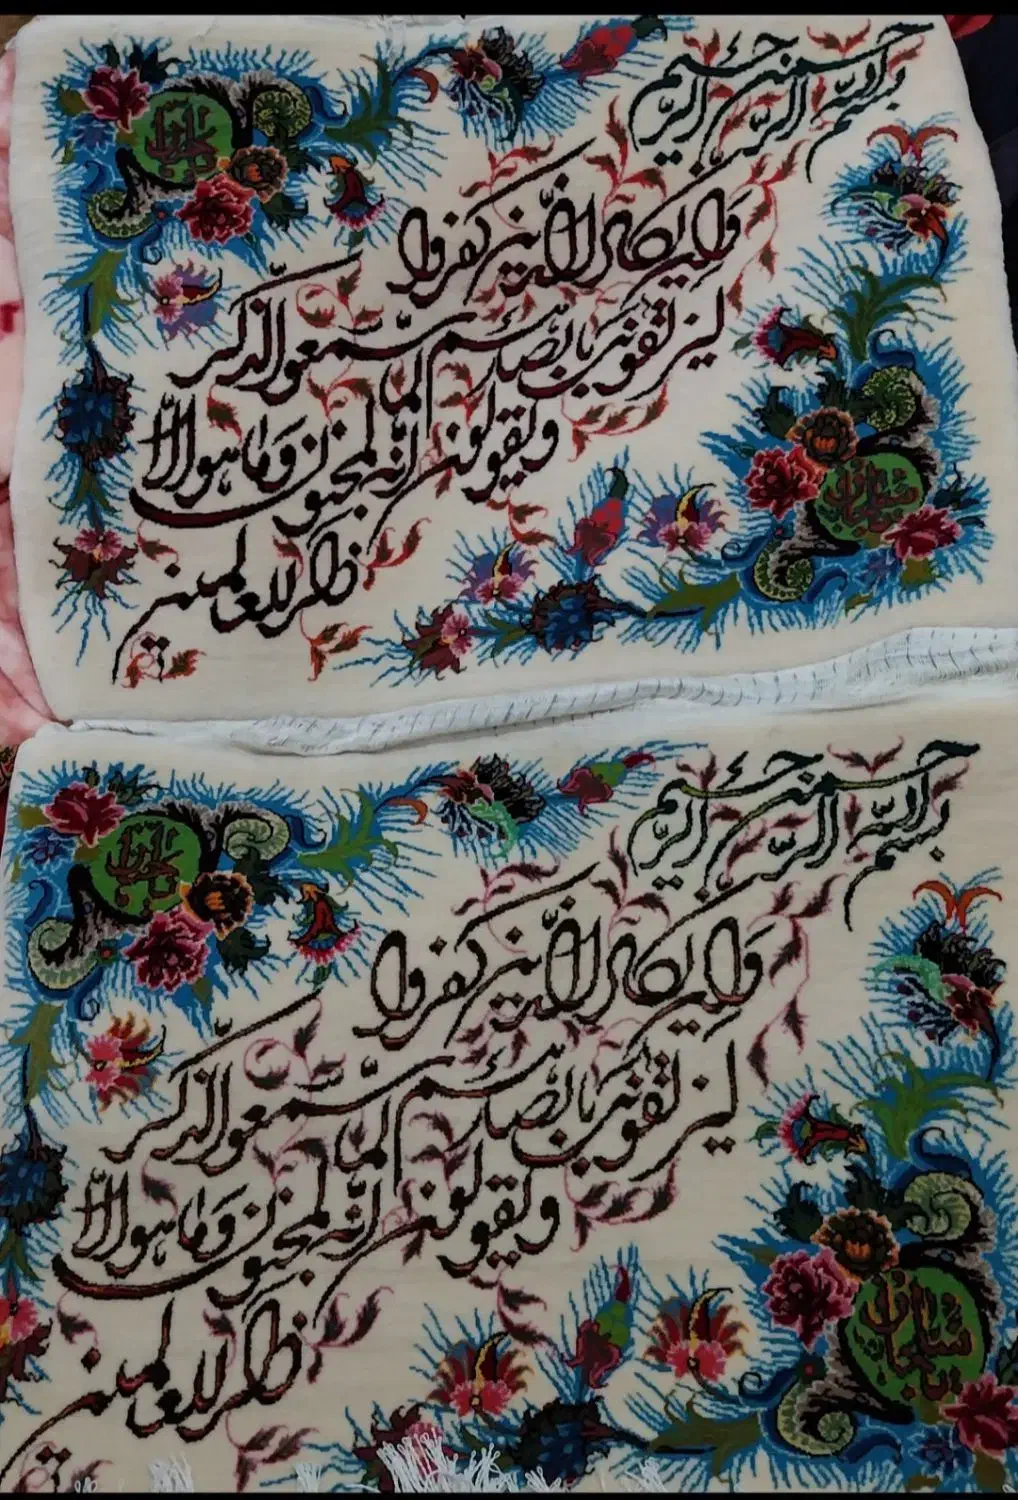 بسم الله الرحمن الرحیم
وان یکاد الذین کفروا
لیزلقونک بابصارهم لما سمعوا الذکر
ویقولون انه لمجنون وما هو الا
ذکر للعالمین
بسم الله الرحمن الرحیم
وان یکاد الذین کفروا
لیزلقونک بابصارهم لما سمعوا الذکر
ویقولون انه لمجنون وما هو الا
ذکر للعالمین